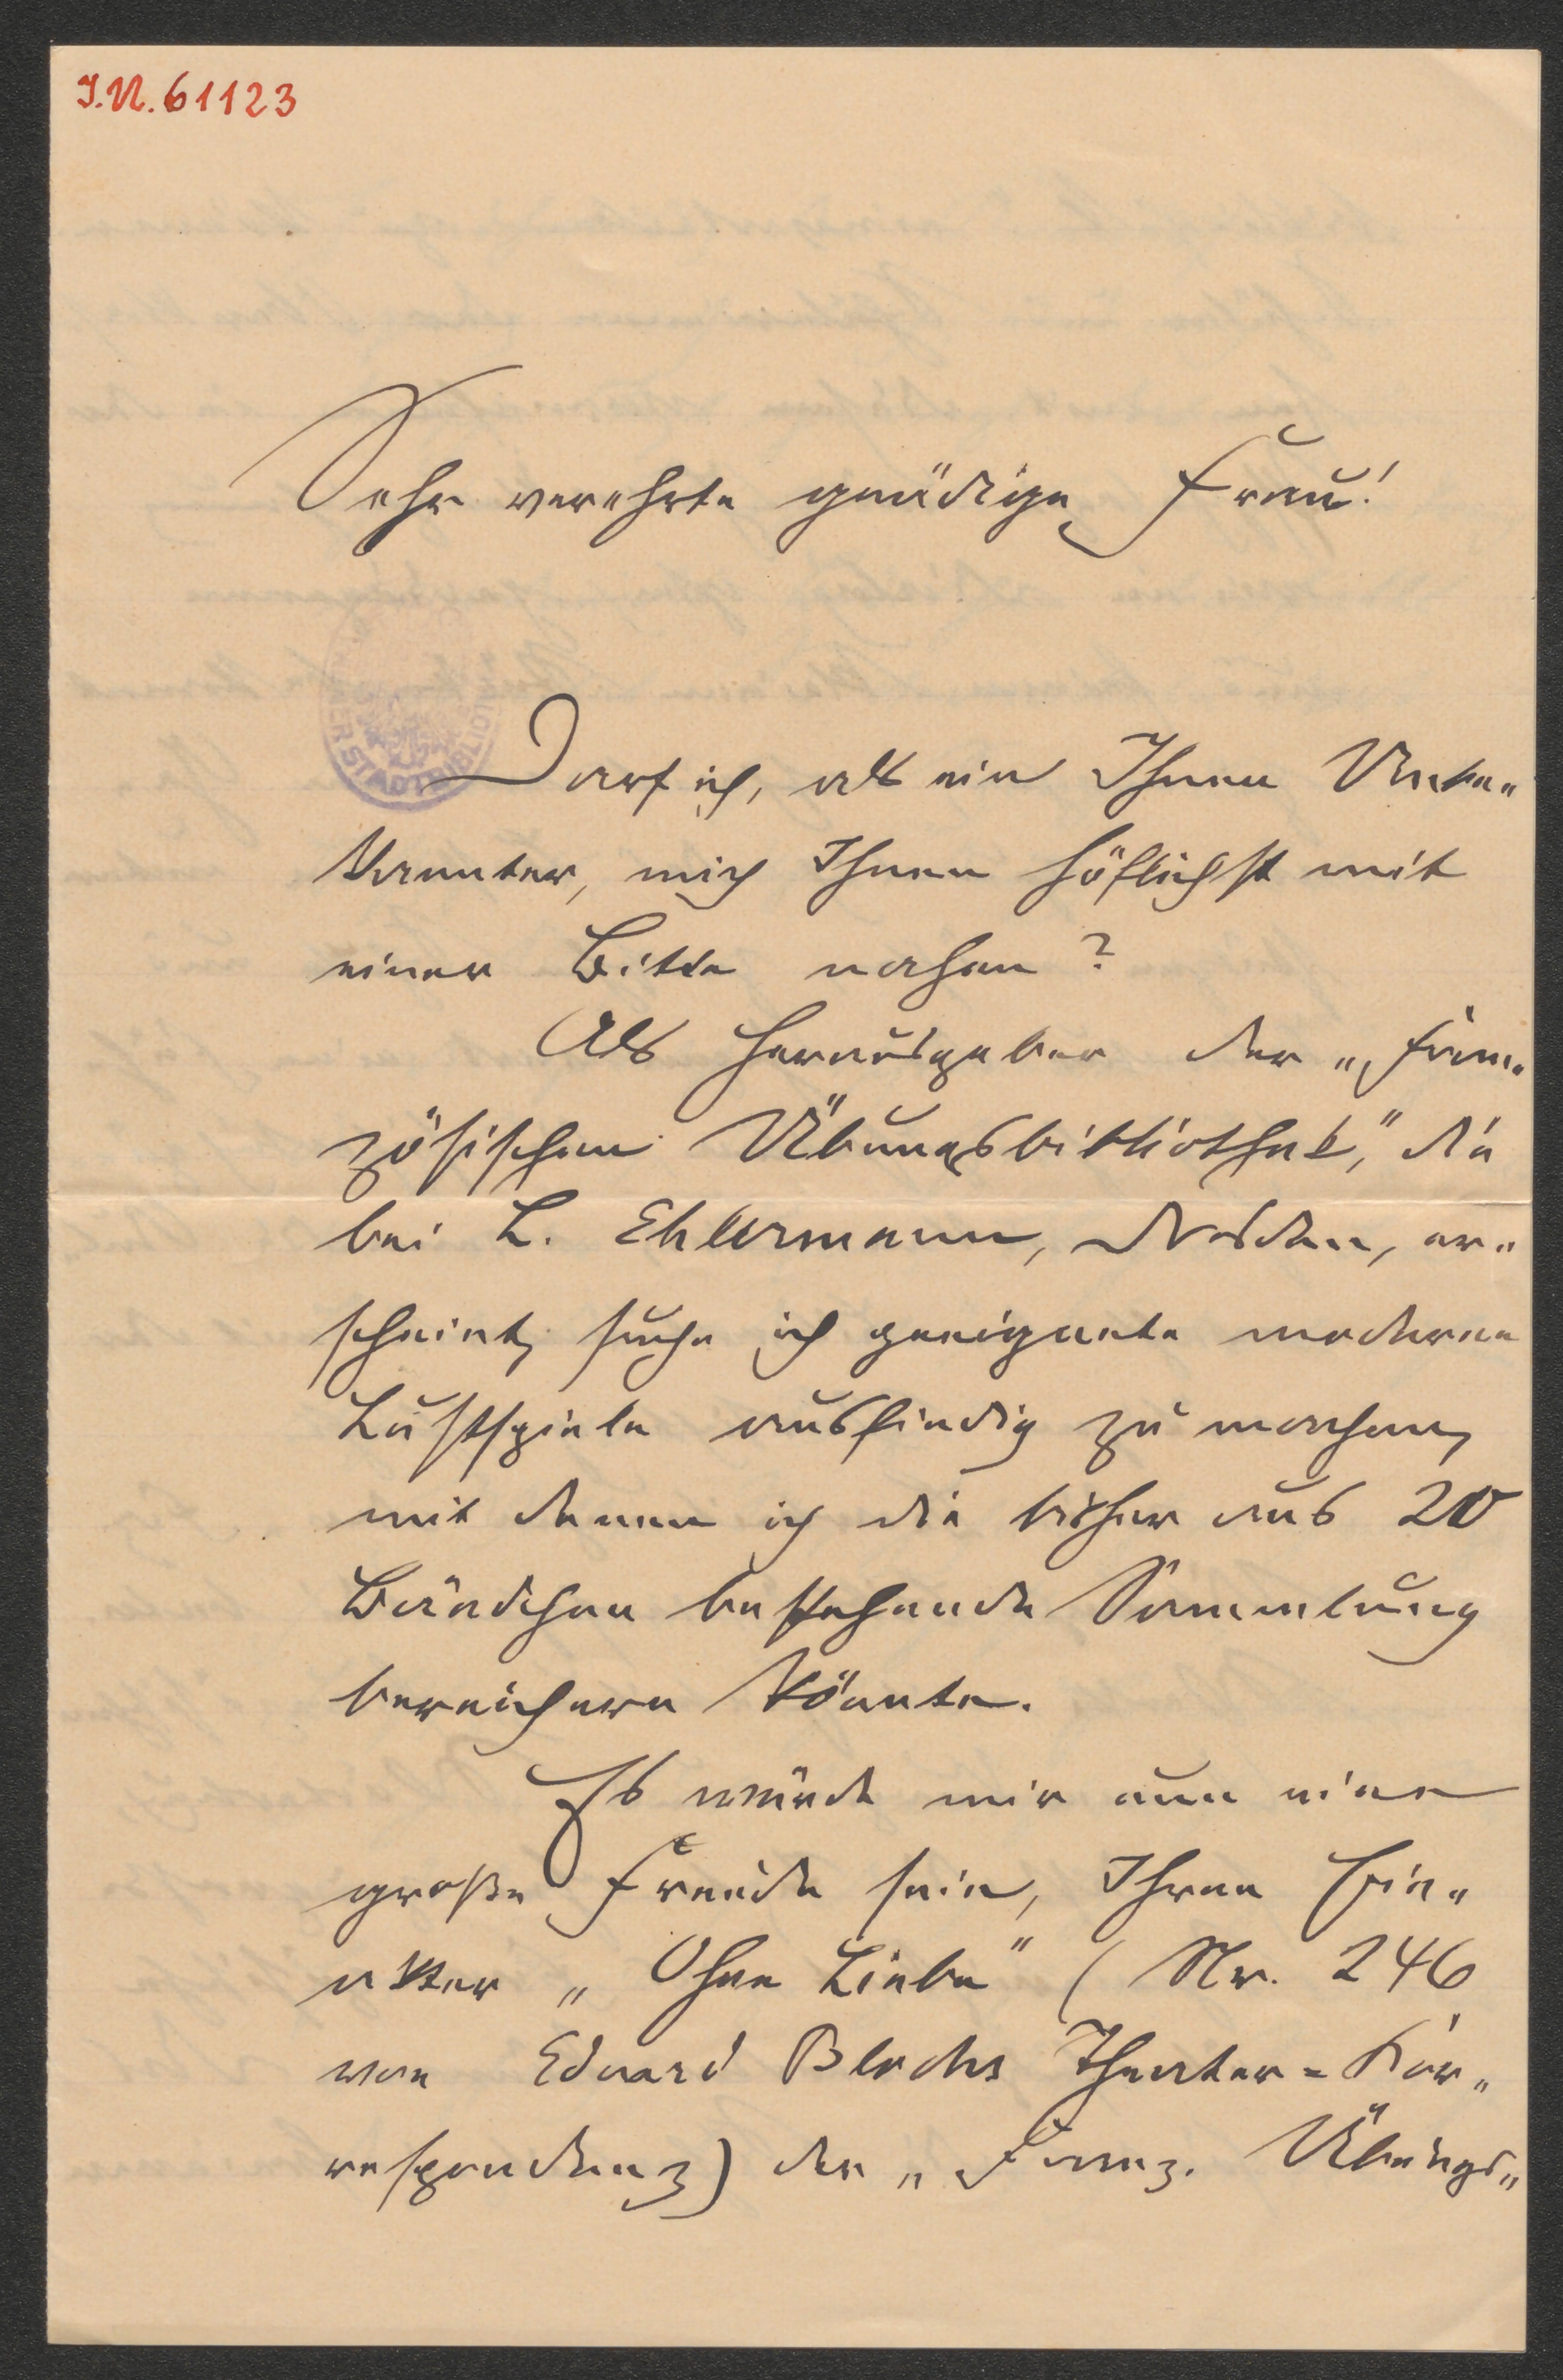 I.N. 61123
Sehr verehrte gnädige Frau!
Darf ich, als ein Ihnen Unbe„
kannter, mich Ihnen höflichst mit
einer Bitte nahen?
Als Herausgeber der „Fran„
zösischen Übungsbibliothek“, die
bei L. Ehlermann, Dresden, er„
scheint, suche ich geeignete moderne
Lustspiele ausfindig zu machen,
mit denen ich die bisher aus 20
Bändchen bestehende Sammlung
bereichern könnte.
Es würde mir nun eine
große Freude sein, Ihren Ein„
akter „Ohne Liebe“ (Nr. 246
von Eduard Blochs Theater=Kor„
respondenz) der „Franz. Übungs„